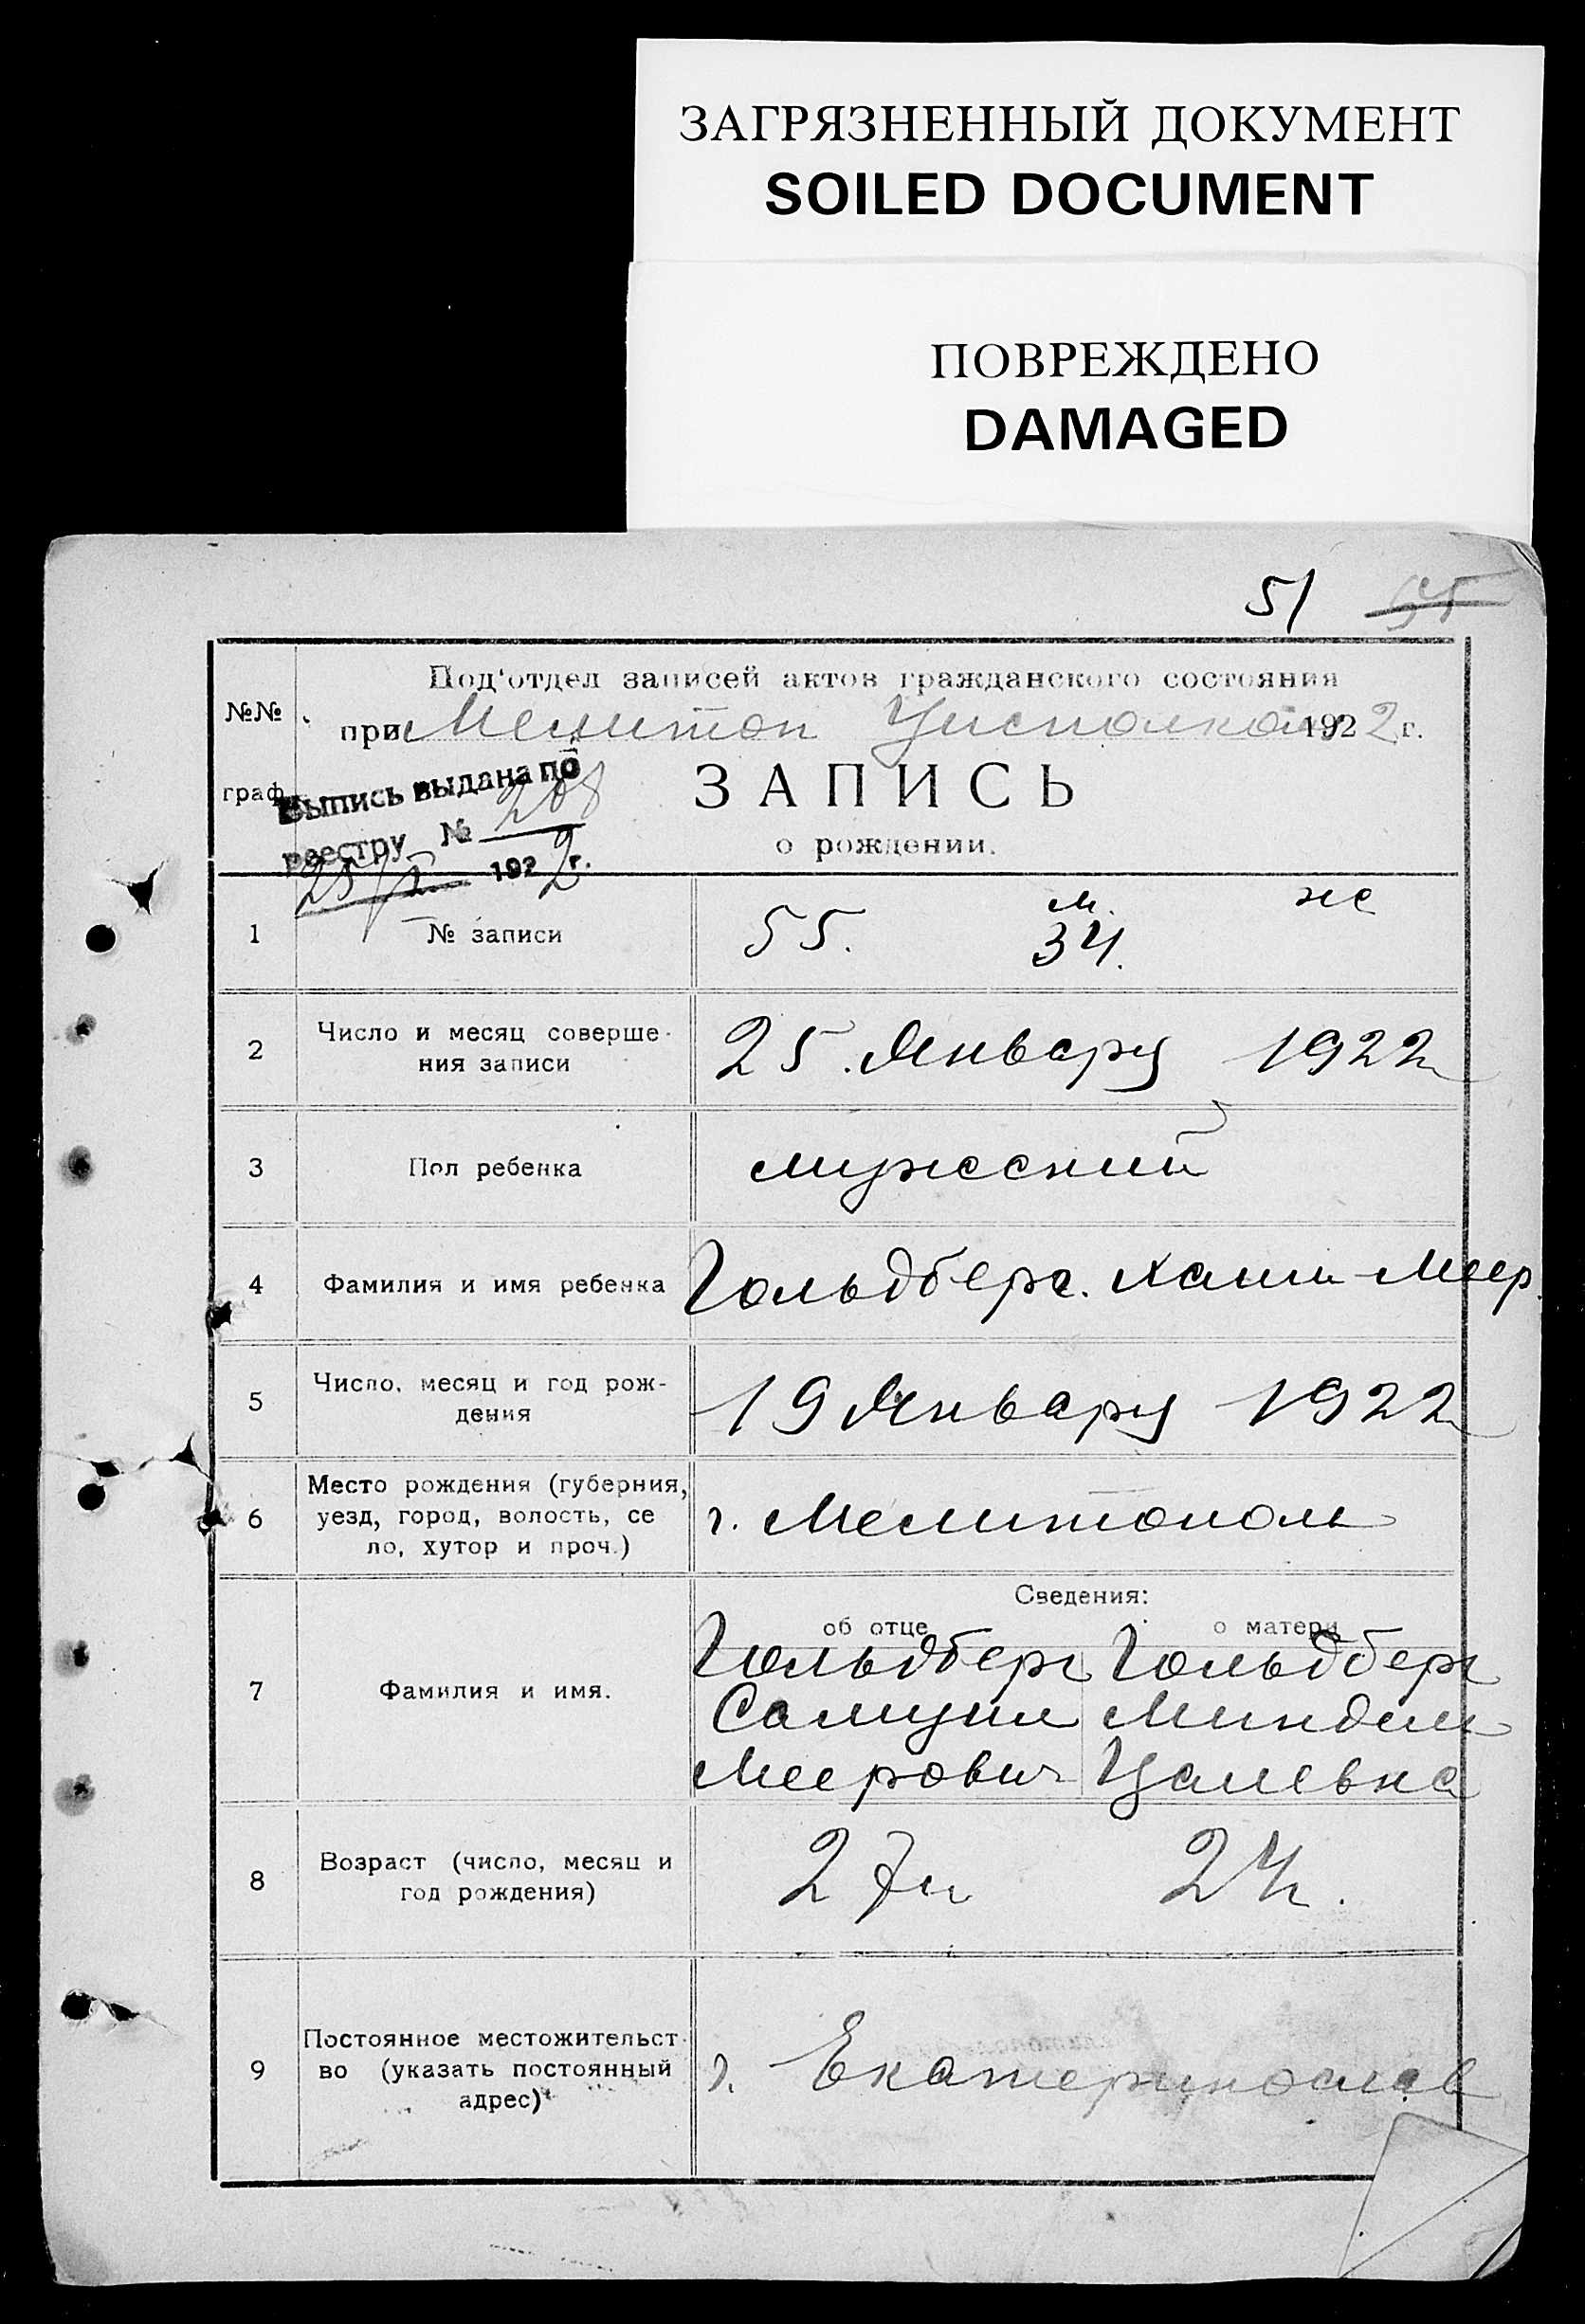 ЗАГРЯЗНЕННЫЙ ДОКУМЕНТ
SOILED DOCUMENT
ПОВРЕЖДЕНО
DAMAGED
51
№№
Под'отдел записей актов гражданского состояния
при Мелитоп Уисполкоме 1922 г.
граф.
Выпись выдана по
реестру № 208
1922 г.
ЗАПИСЬ
о рождении.
1 № записи 55. м. 34. же
2 Число и месяц соверше-
ния записи 25. Январу 1922
3 Пол ребенка мужеский
4 Фамилия и имя ребенка Гольдберг. Хаим-Меер.
5 Число, месяц и год рож-
дения 19 Январу 1922
6 Место рождения (губерния,
уезд, город, волость, се
ло, хутор и проч.) г. Мелитополь
Сведения:
об отце о матери
Гольдберг Гольдберг
7 Фамилия и имя. Самуил
Меерович Цалевна
8 Возраст (число, месяц и
год рождения) 27 л 24 л.
9 Постоянное местожительст-
во (указать постоянный
адрес) г. Екатеринослав